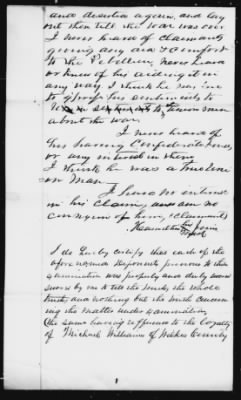 and desertion again, and lay
out then till the war was over
I never heard of Claimants
giving any aid & comfort
to the Rebellion, never heard
or knew of his aiding it in
any way. I think he was
to profess his sentiments to
men
about the war.
I never heard of
his having Confederate
or any interest in them
I think he was a true Union
man
I have no interest
in his claim, and am no
of him, (Claimant)
Hamilton his
mark
I do hereby certify that each of the
afore named deponents previous to their
examination was properly and duly
sworn by me to tell the truth, the whole
truth and nothing but the truth concern
ing the matter under examination
(the same having reference to the loyalty
of Michael Williams of Wilkes County